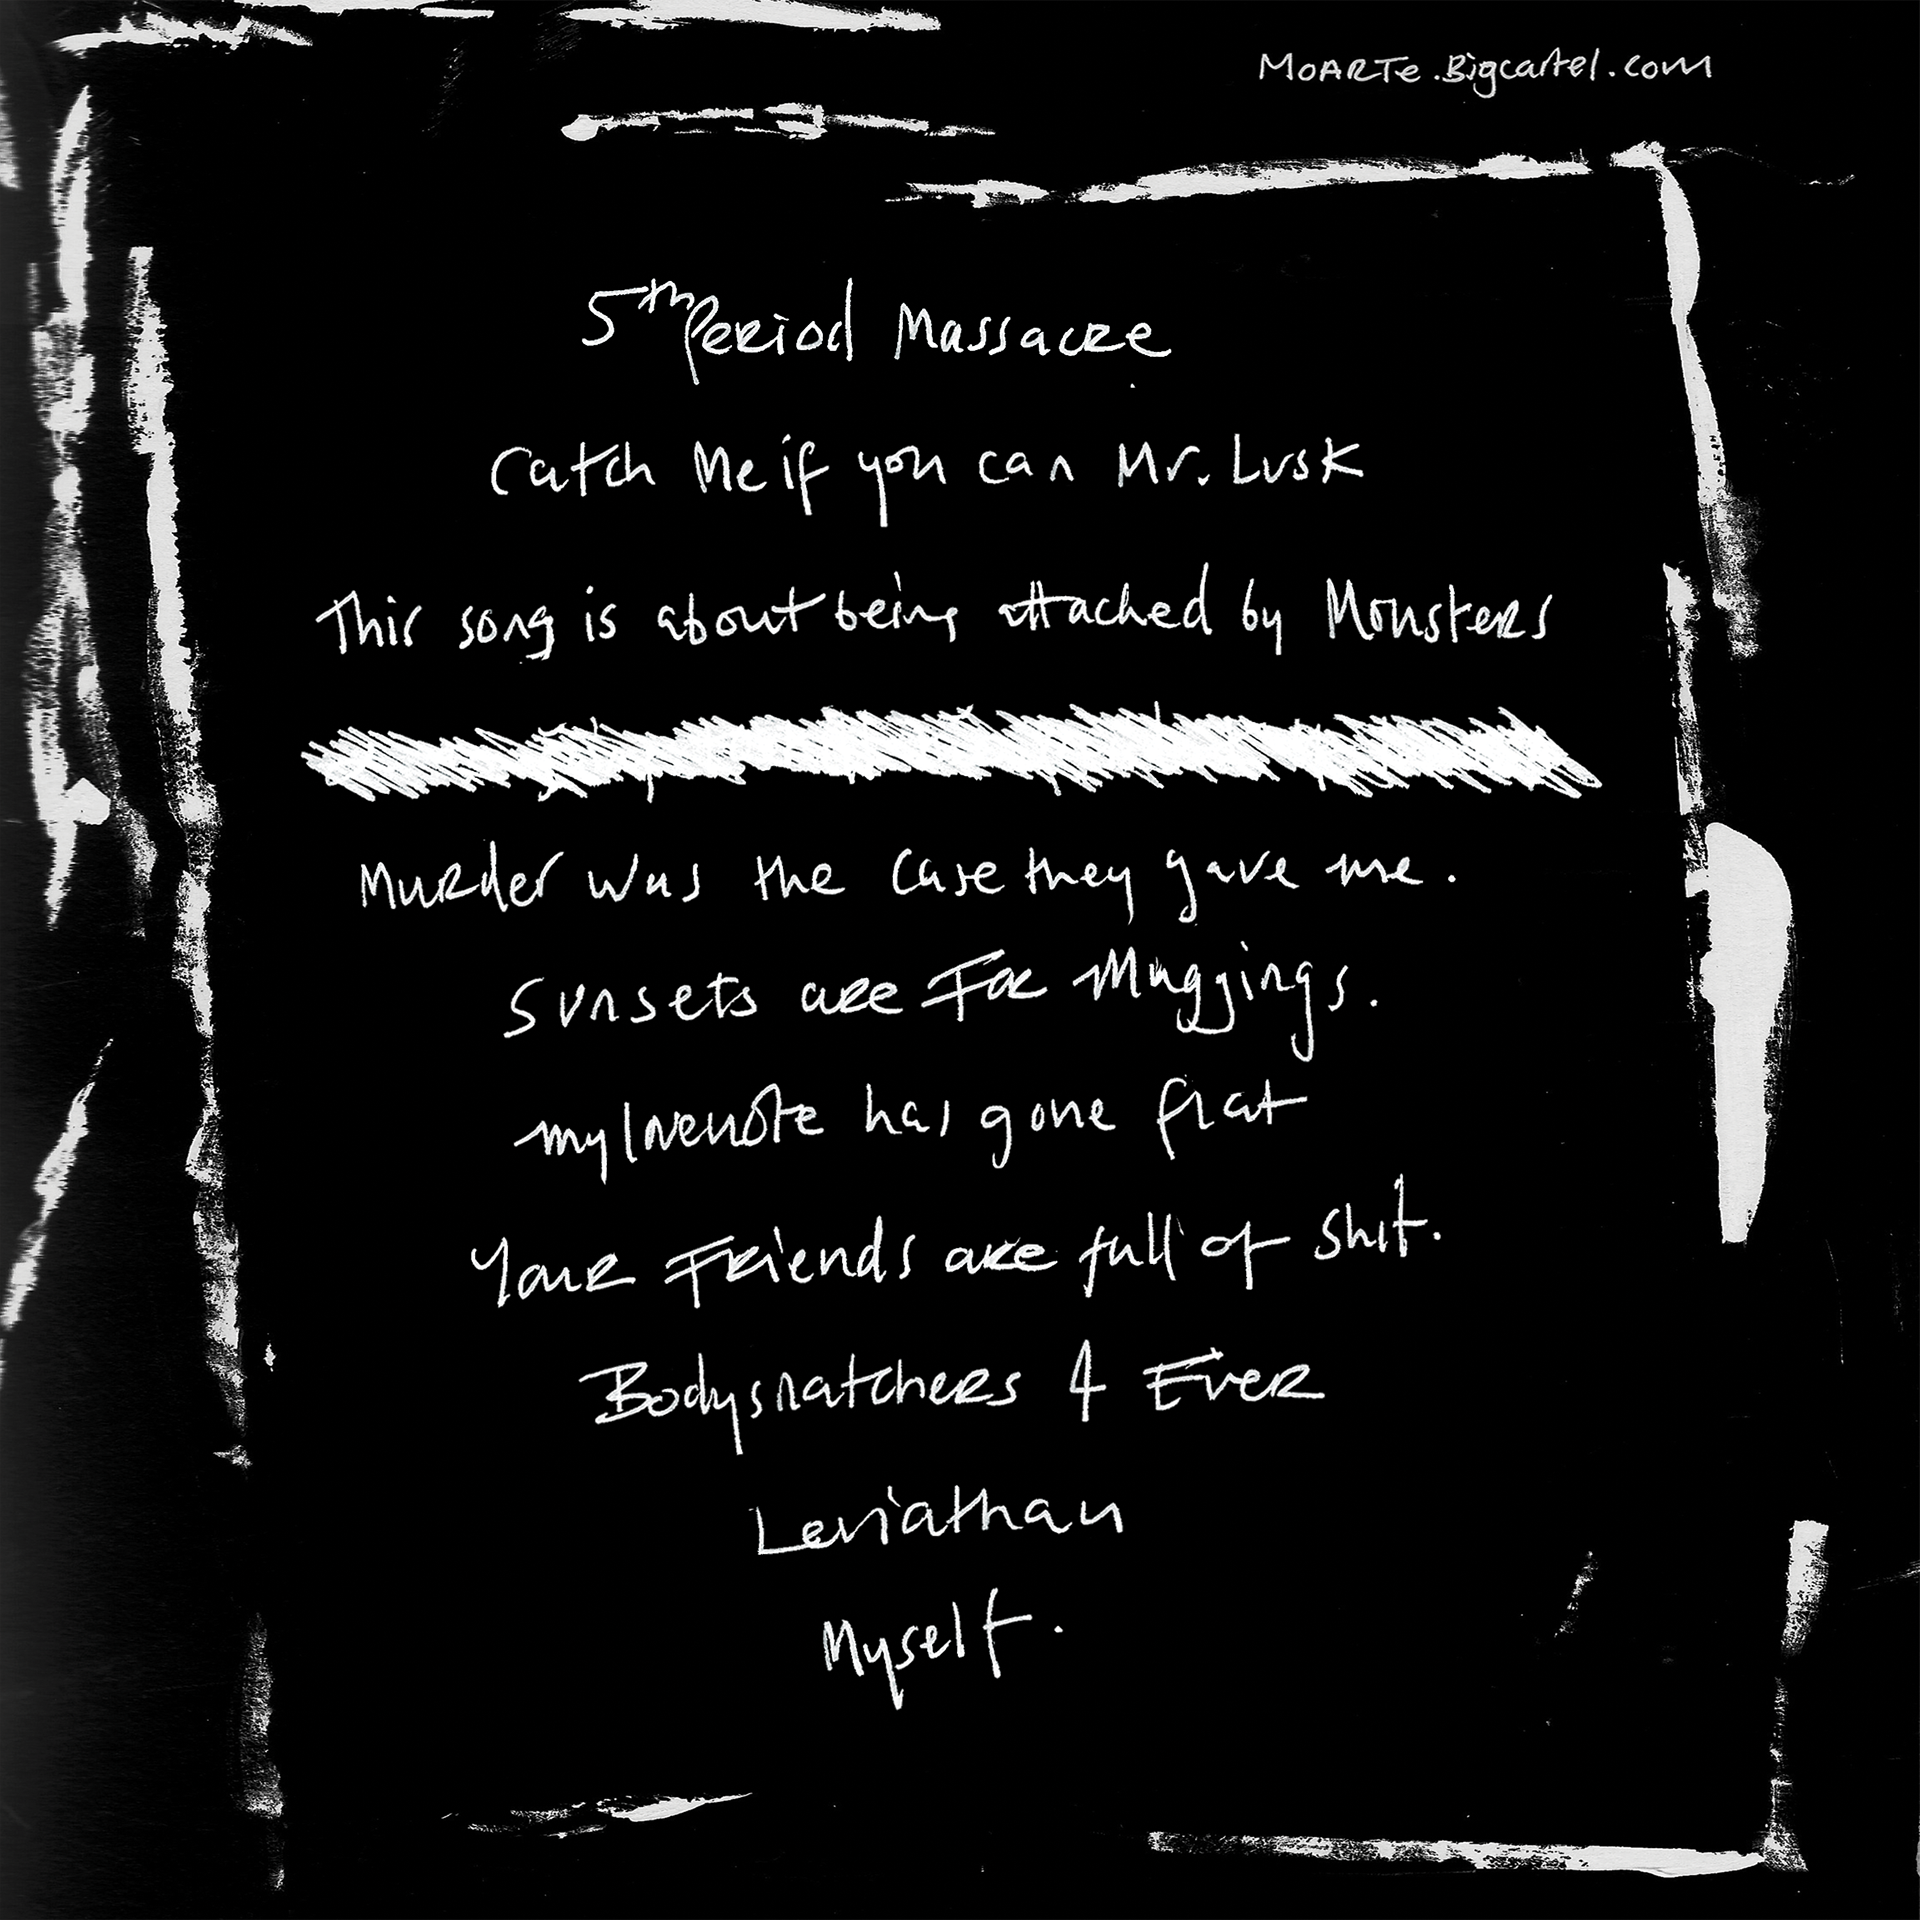 MOARTe.Bigcartel.com
5th Period Massacre
Catch Me if you can Mr. Lusk
This song is about being attached by Monsters
Murder was the case they gave me.
Sunsets are For Muggings.
my has gone flat
Your Friends are full of shit.
Bodysnatchers 4 Ever
Leviathan
Myself.